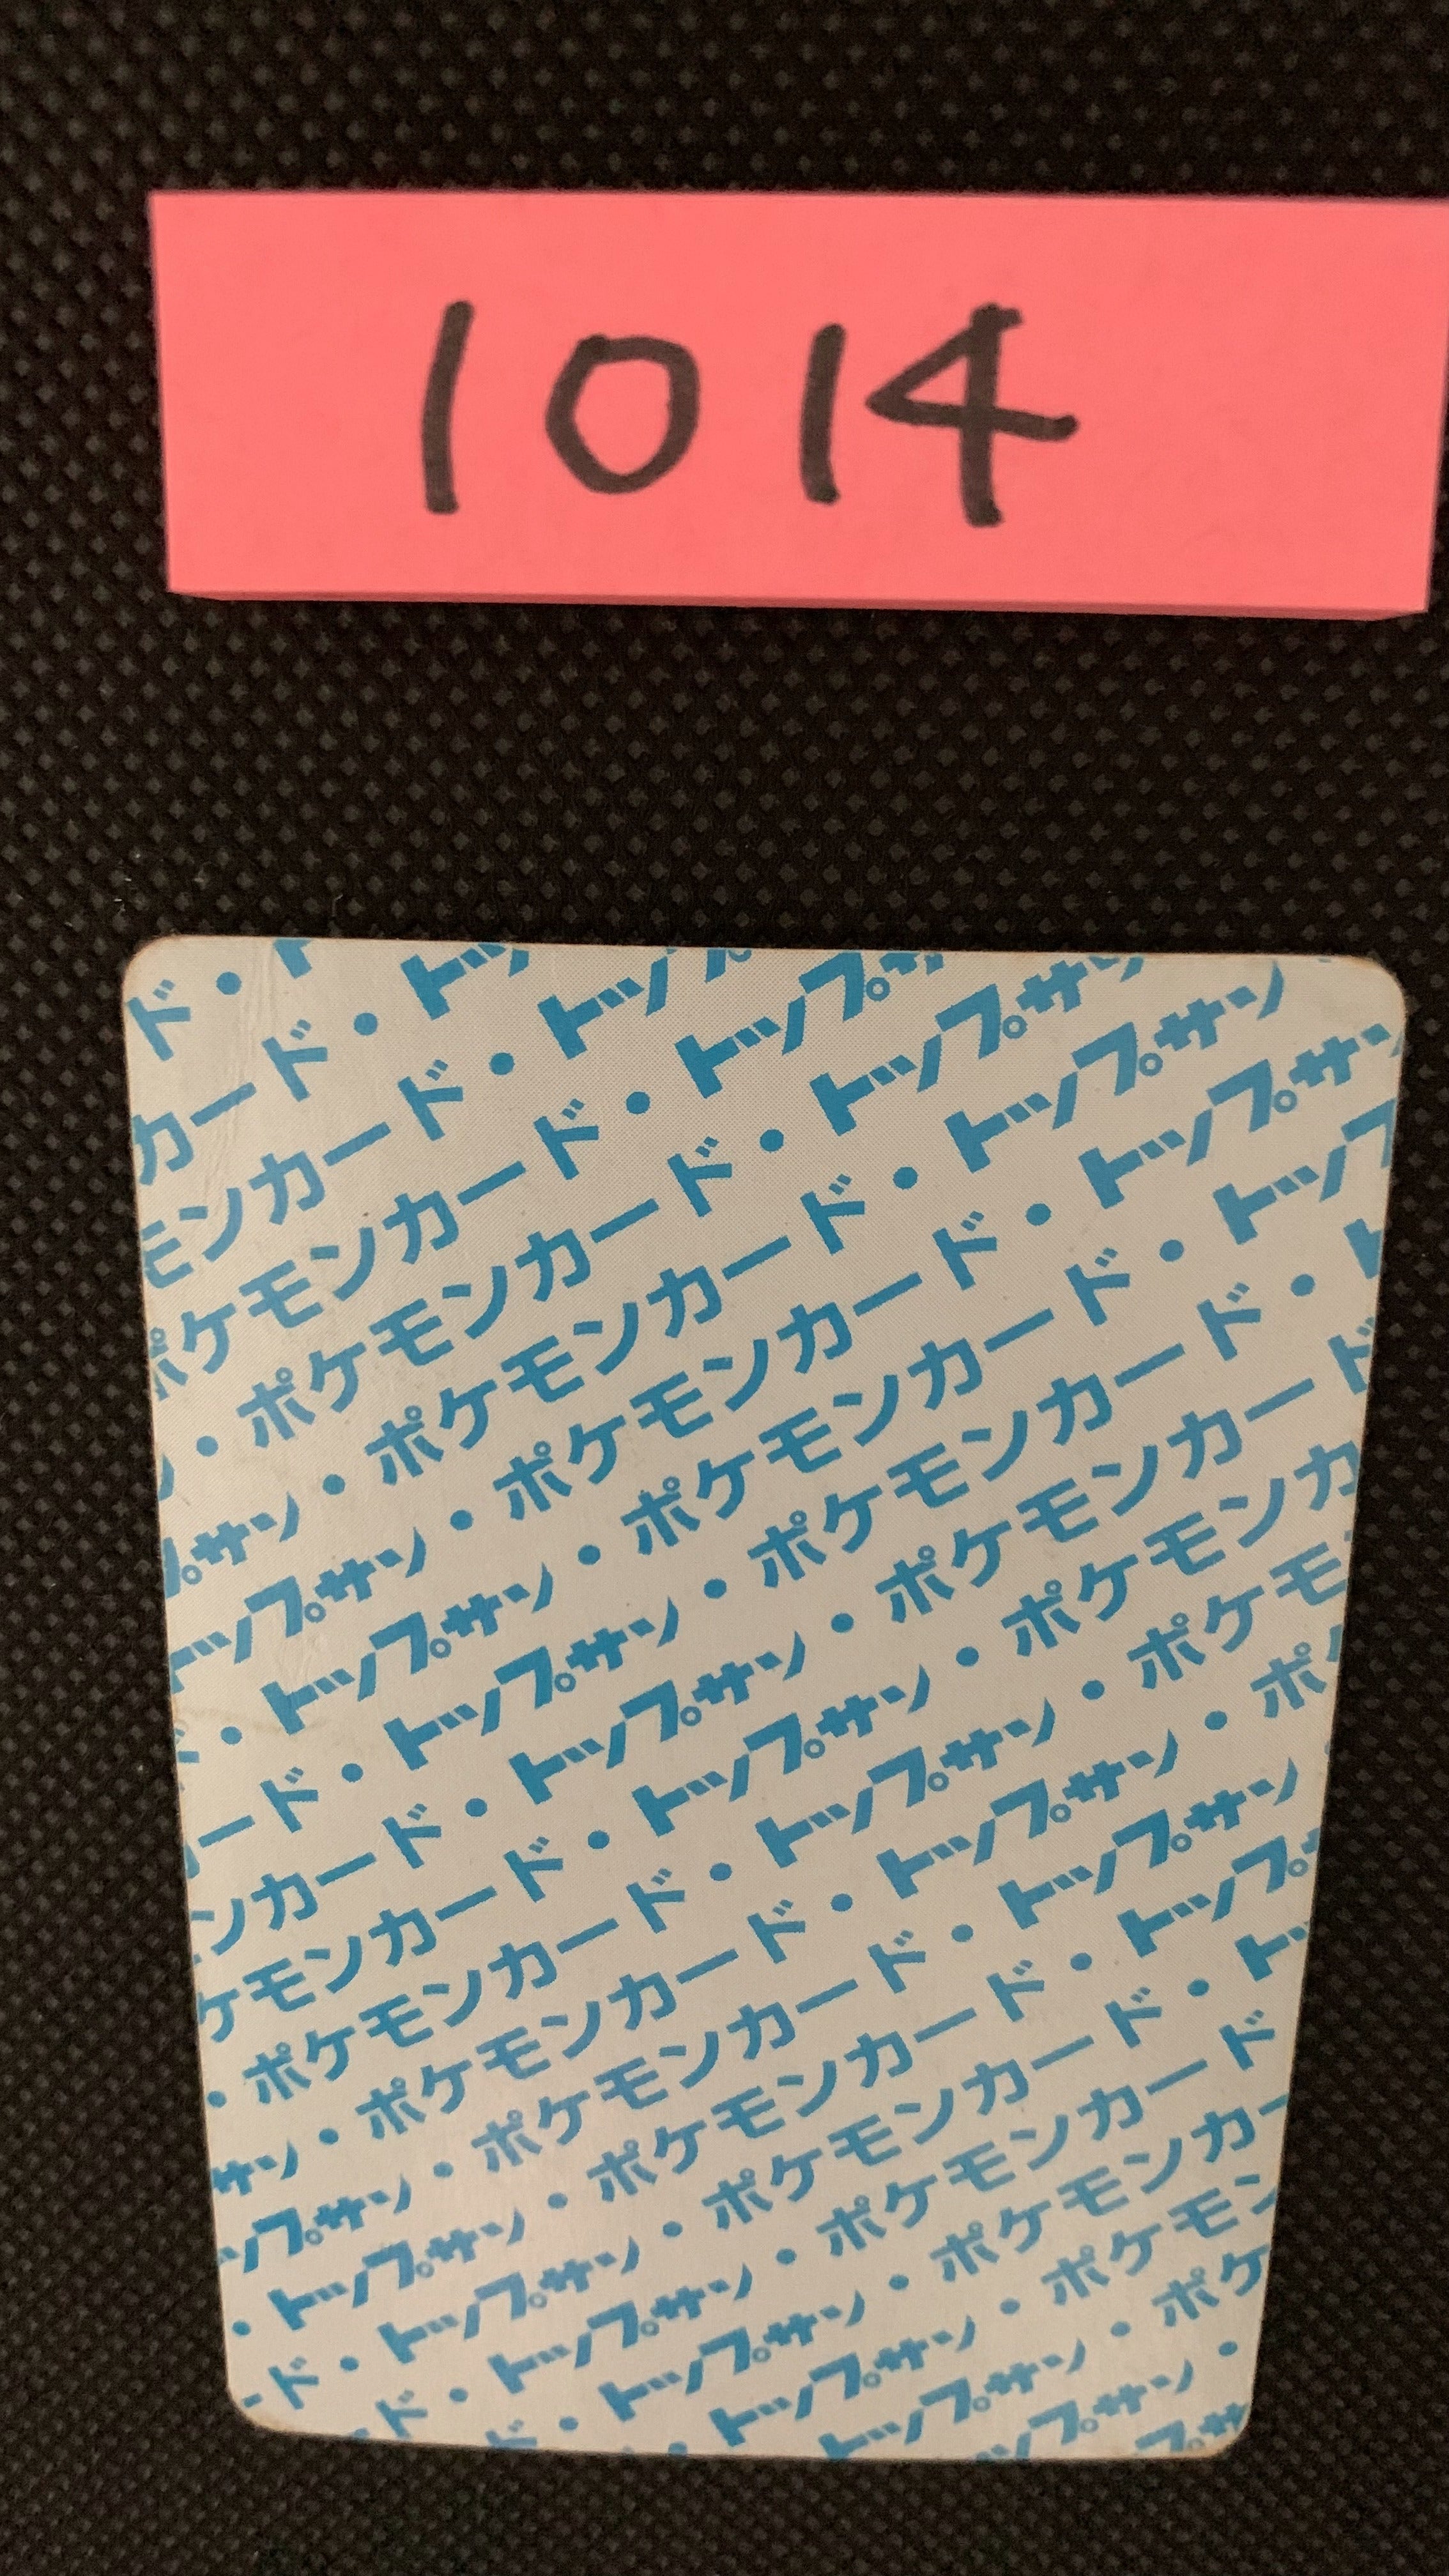 1014
ド・ト
カード・トッ
モンカード・トップ
ポケモンカード・トップサ
・ポケモンカード・トップサン
プサン・ポケモンカード・トップサン
トップサン・ポケモンカード・トップサン
ド・トップサン・ポケモンカード・トップ
ード・トップサン・ポケモンカード・ト
ンカード・トップサン・ポケモンカード
ケモンカード・トップサン・ポケモンカ
・ポケモンカード・トップサン・ポケモ
サン・ポケモンカード・トップサン・ポ
ップサン・ポケモンカード・トップサン
・トップサン・ポケモンカード・トップ
ド・トップサン・ポケモンカード・ト
ド・トップサン・ポケモンカード
ド・トップサン・ポケモンカー
・トップサン・ポケモン
トップサン・ポケ
ップサン・
プサ